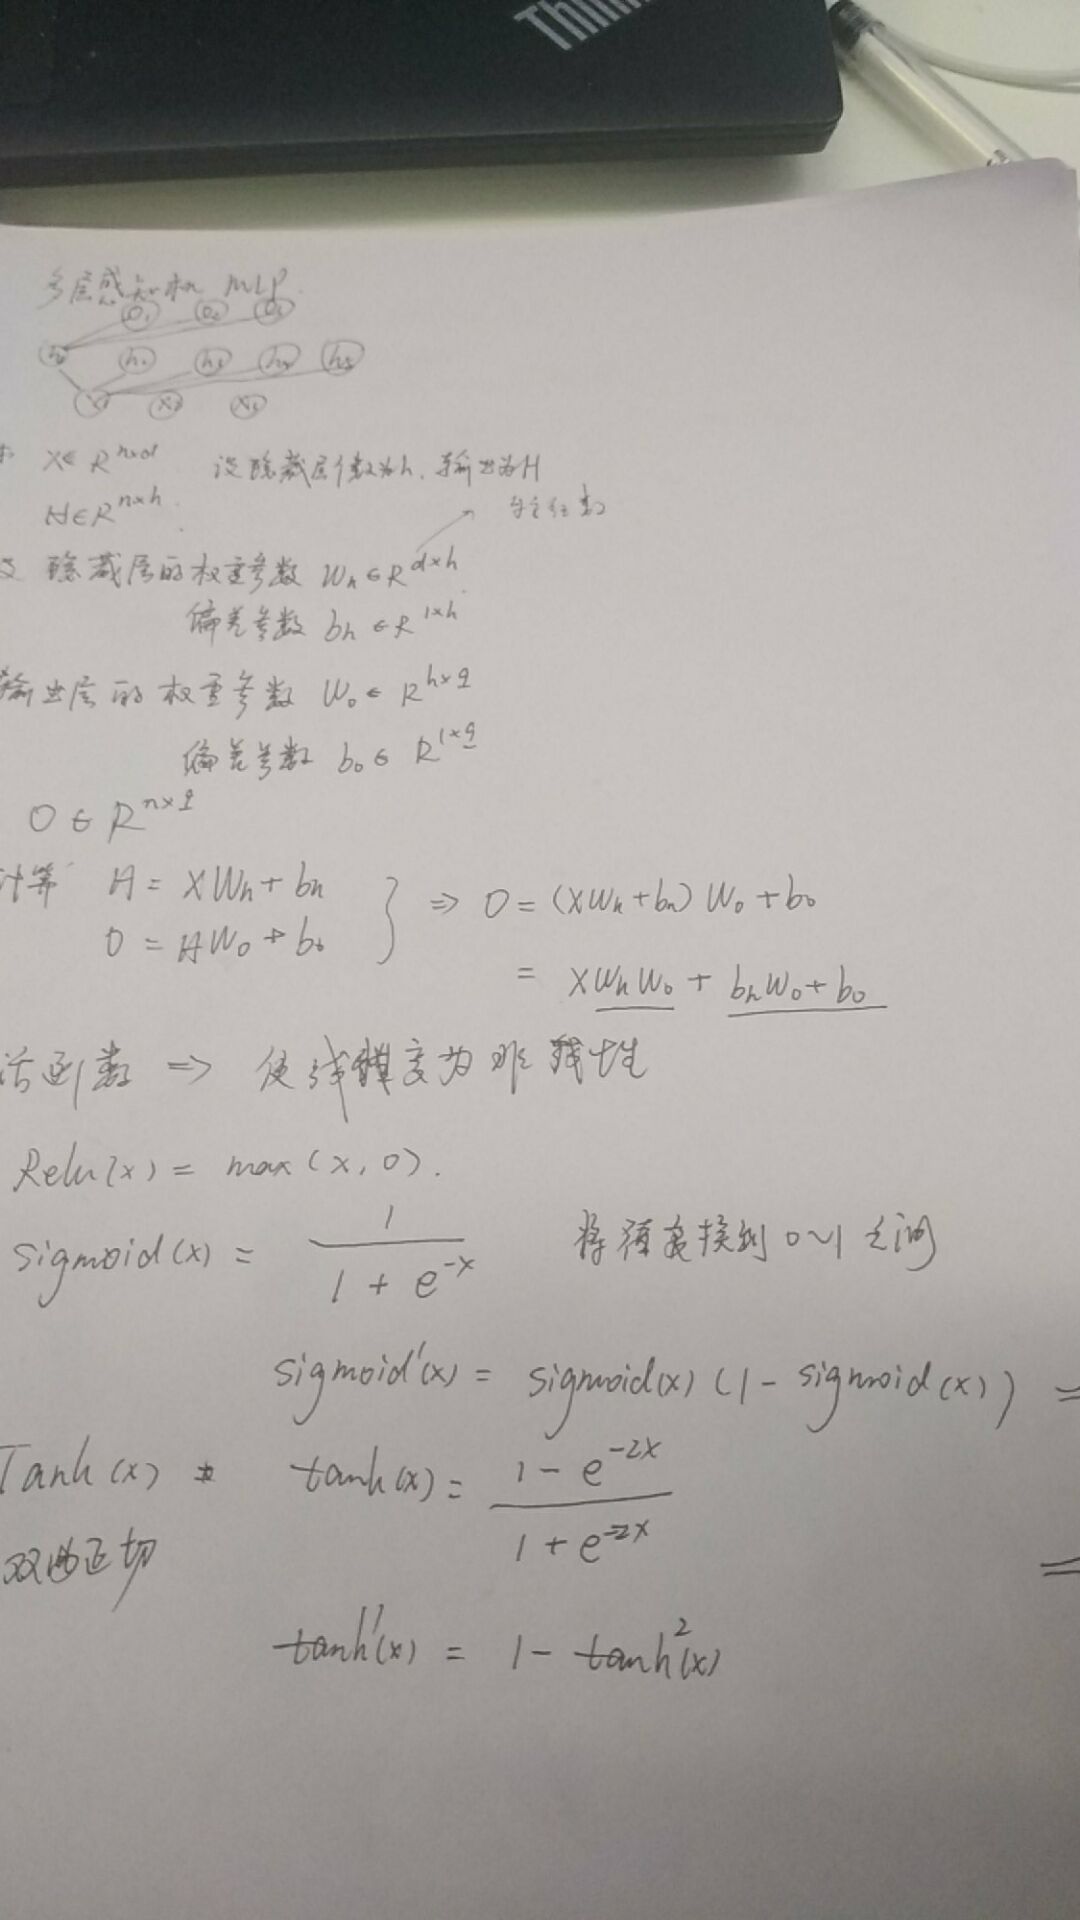 Thin
多层感知机 MLP.
O₁ O₂ O₃
h₁ h₂ h₃ h₄ h₅
X₁ X₂ X₃
X∈R^{n×d} 设隐藏层个数为h. 输出为H
H∈R^{n×h}.
隐藏层的权重参数 W_h∈R^{d×h}
偏差参数 b_h∈R^{1×h}
输出层的权重参数 W_o∈R^{h×q}
偏差参数 b_o∈R^{1×q}
O∈R^{n×q}
计算 H = XW_h + b_h
O = HW_o + b_o
} ⇒ O = (XW_h + b_h)W_o + b_o
= XW_hW_o + b_hW_o + b_o
活函数 ⇒ 使线变为非线性
Relu(x) = max(x, 0).
Sigmoid(x) = 1 / (1 + e^{-x}) 将值变换到 0~1 之间
Sigmoid'(x) = Sigmoid(x)(1 - Sigmoid(x)) =
Tanh(x) tanh(x) = (1 - e^{-2x}) / (1 + e^{-2x})
双曲正切 =
tanh'(x) = 1 - tanh²(x)